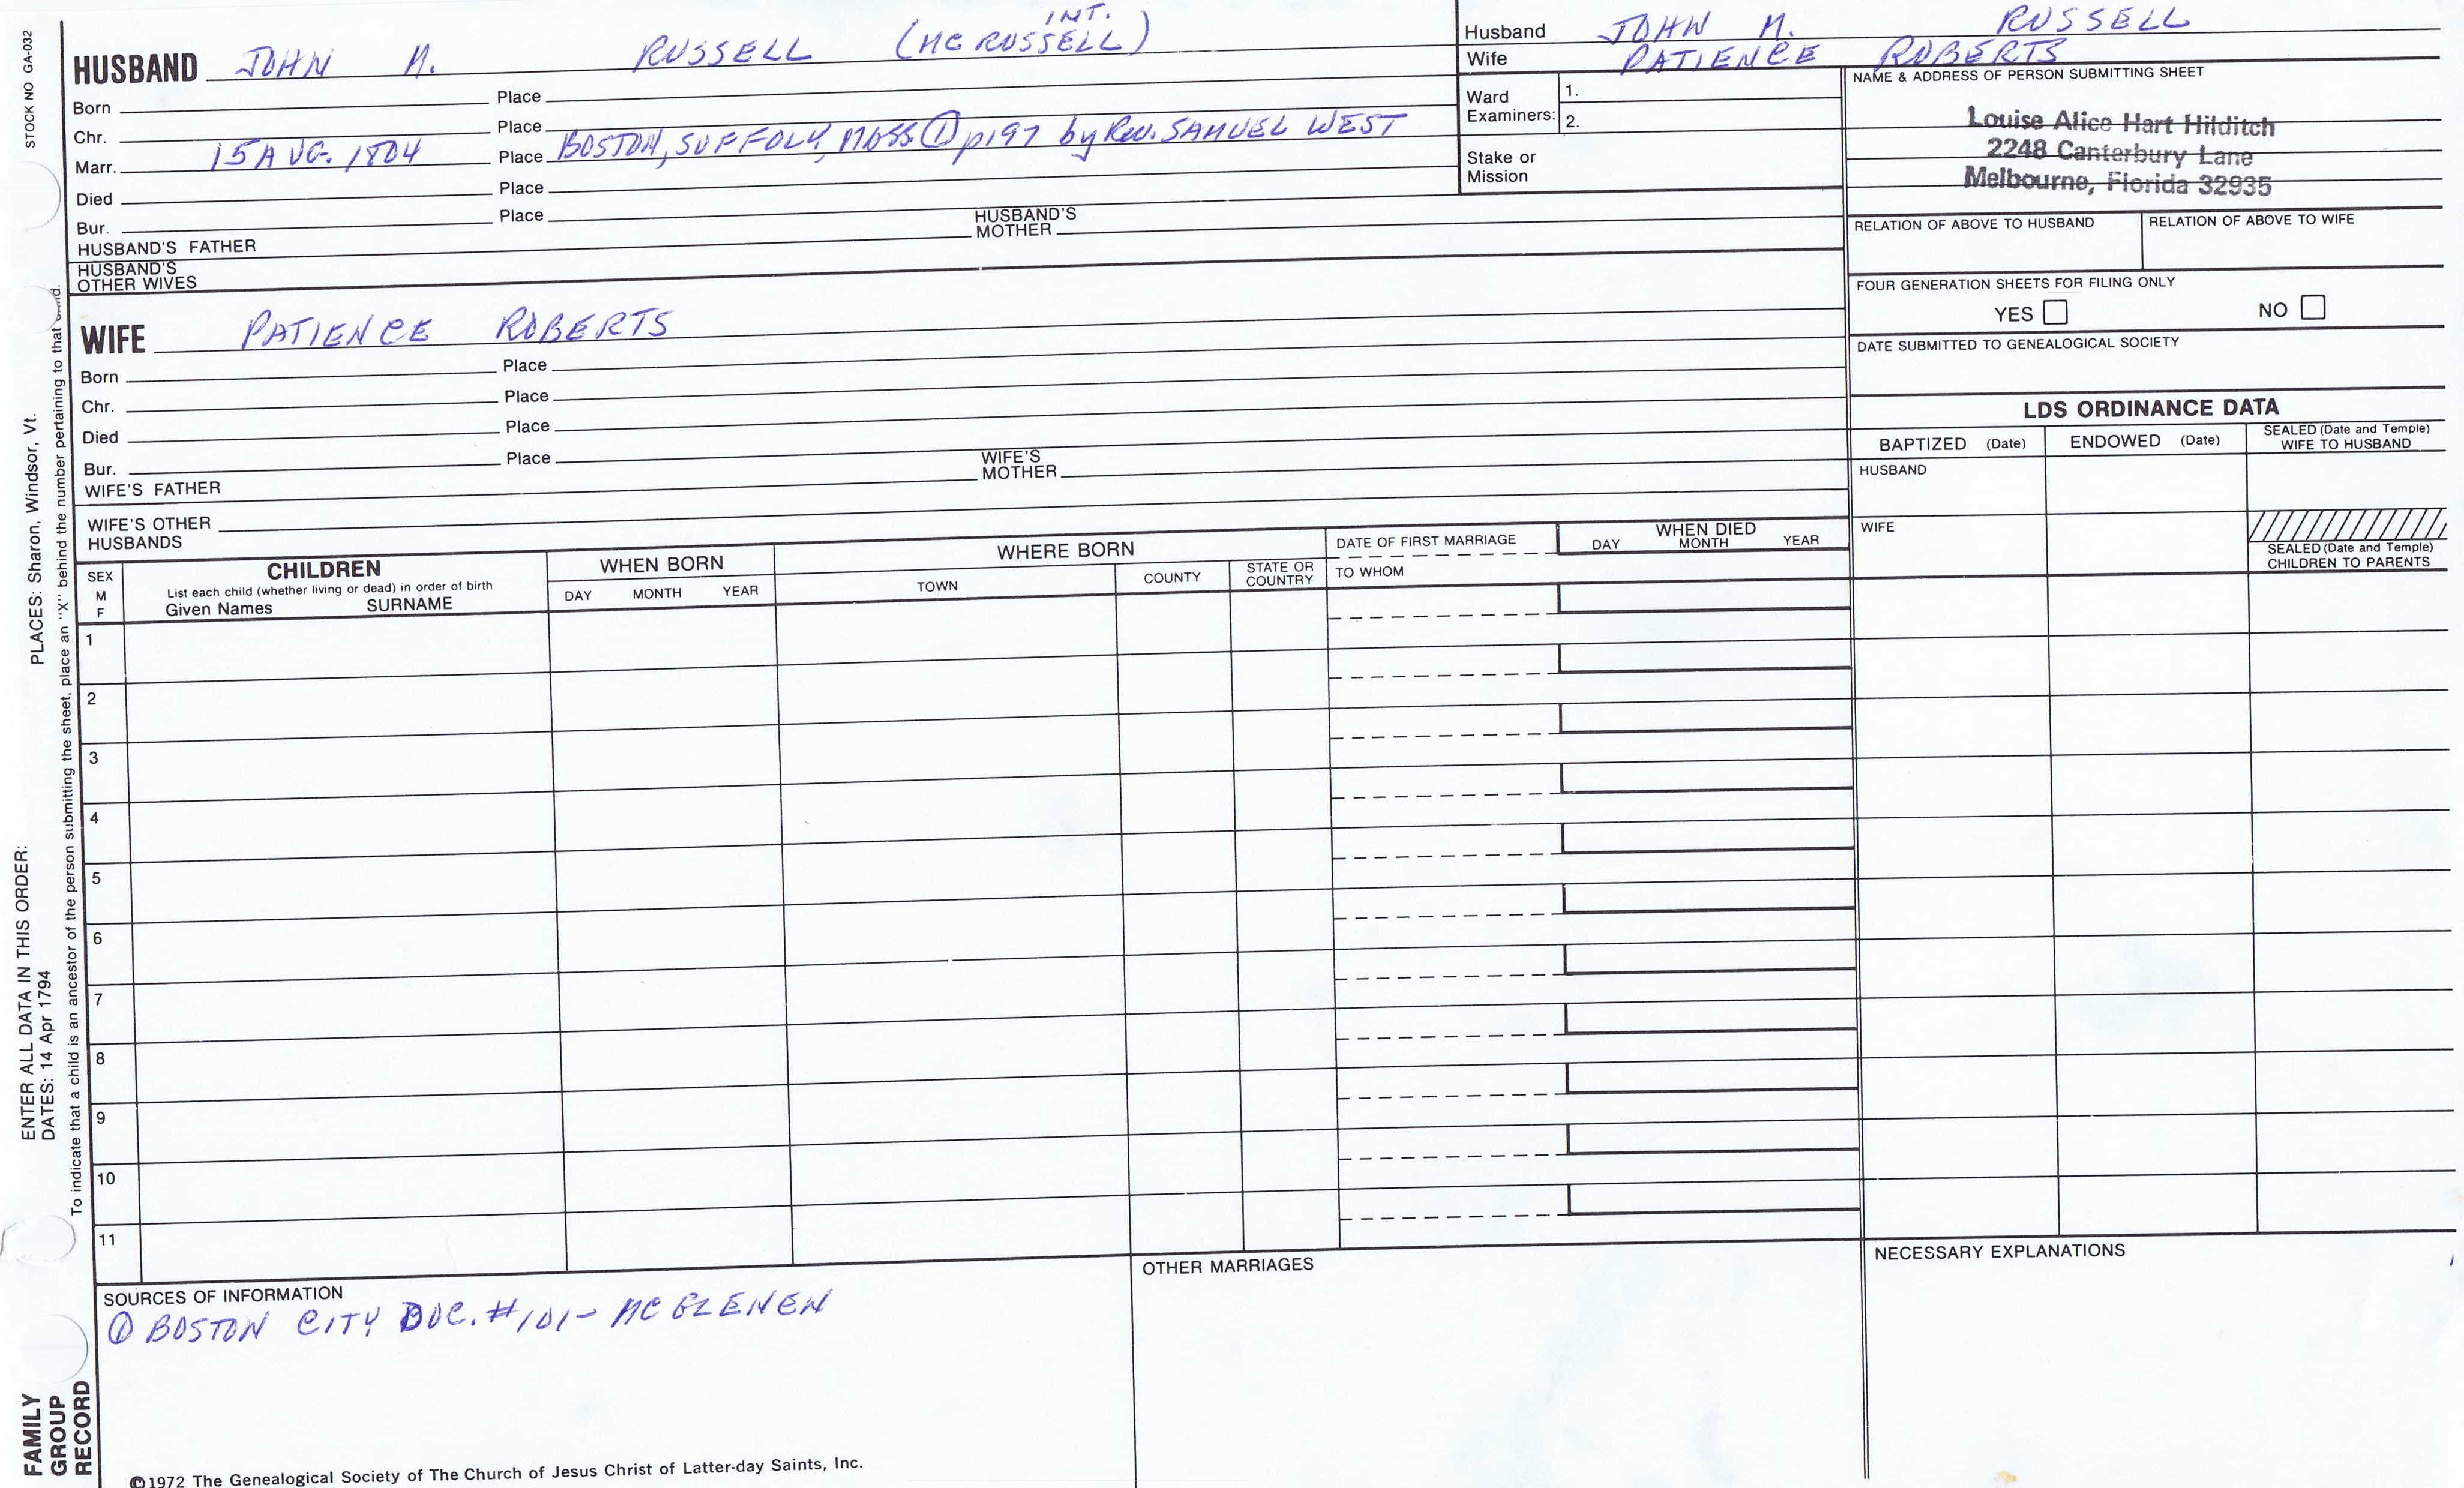 STOCK NO GA-032
PLACES: Sharon, Windsor, Vt.
ENTER ALL DATA IN THIS ORDER:
DATES: 14 Apr 1794
To indicate that a child is an ancestor of the person submitting the sheet, place an "X" behind the number pertaining to that
FAMILY
GROUP
RECORD
INT.
HUSBAND JOHN M. RUSSELL (MCRUSSELL)
Born Place
Chr. Place
Marr. 15 AUG. 1804 Place BOSTON, SUFFOLK, MASS ① p197 by Rev. SAMUEL WEST
Died Place
Bur. Place
HUSBAND'S FATHER HUSBAND'S MOTHER
HUSBAND'S
OTHER WIVES
WIFE PATIENCE ROBERTS
Born Place
Chr. Place
Died Place
Bur. Place
WIFE'S FATHER WIFE'S MOTHER
WIFE'S OTHER
HUSBANDS
Husband JOHN M. RUSSELL
Wife PATIENCE ROBERTS
Ward
Examiners:
1.
2.
Stake or
Mission
NAME & ADDRESS OF PERSON SUBMITTING SHEET
Louise Alice Hart Hilditch
2248 Canterbury Lane
Melbourne, Florida 32935
RELATION OF ABOVE TO HUSBAND RELATION OF ABOVE TO WIFE
FOUR GENERATION SHEETS FOR FILING ONLY
YES NO
DATE SUBMITTED TO GENEALOGICAL SOCIETY
LDS ORDINANCE DATA
BAPTIZED (Date) ENDOWED (Date) SEALED (Date and Temple)
WIFE TO HUSBAND
HUSBAND
WIFE
SEALED (Date and Temple)
CHILDREN TO PARENTS
SEX
M
F
CHILDREN
List each child (whether living or dead) in order of birth
Given Names SURNAME
WHEN BORN
DAY MONTH YEAR
WHERE BORN
TOWN COUNTY STATE OR
COUNTRY
DATE OF FIRST MARRIAGE
TO WHOM
WHEN DIED
DAY MONTH YEAR
1
2
3
4
5
6
7
8
9
10
11
SOURCES OF INFORMATION
① BOSTON CITY DOC. #101- MCGLENEN
OTHER MARRIAGES
NECESSARY EXPLANATIONS
©1972 The Genealogical Society of The Church of Jesus Christ of Latter-day Saints, Inc.